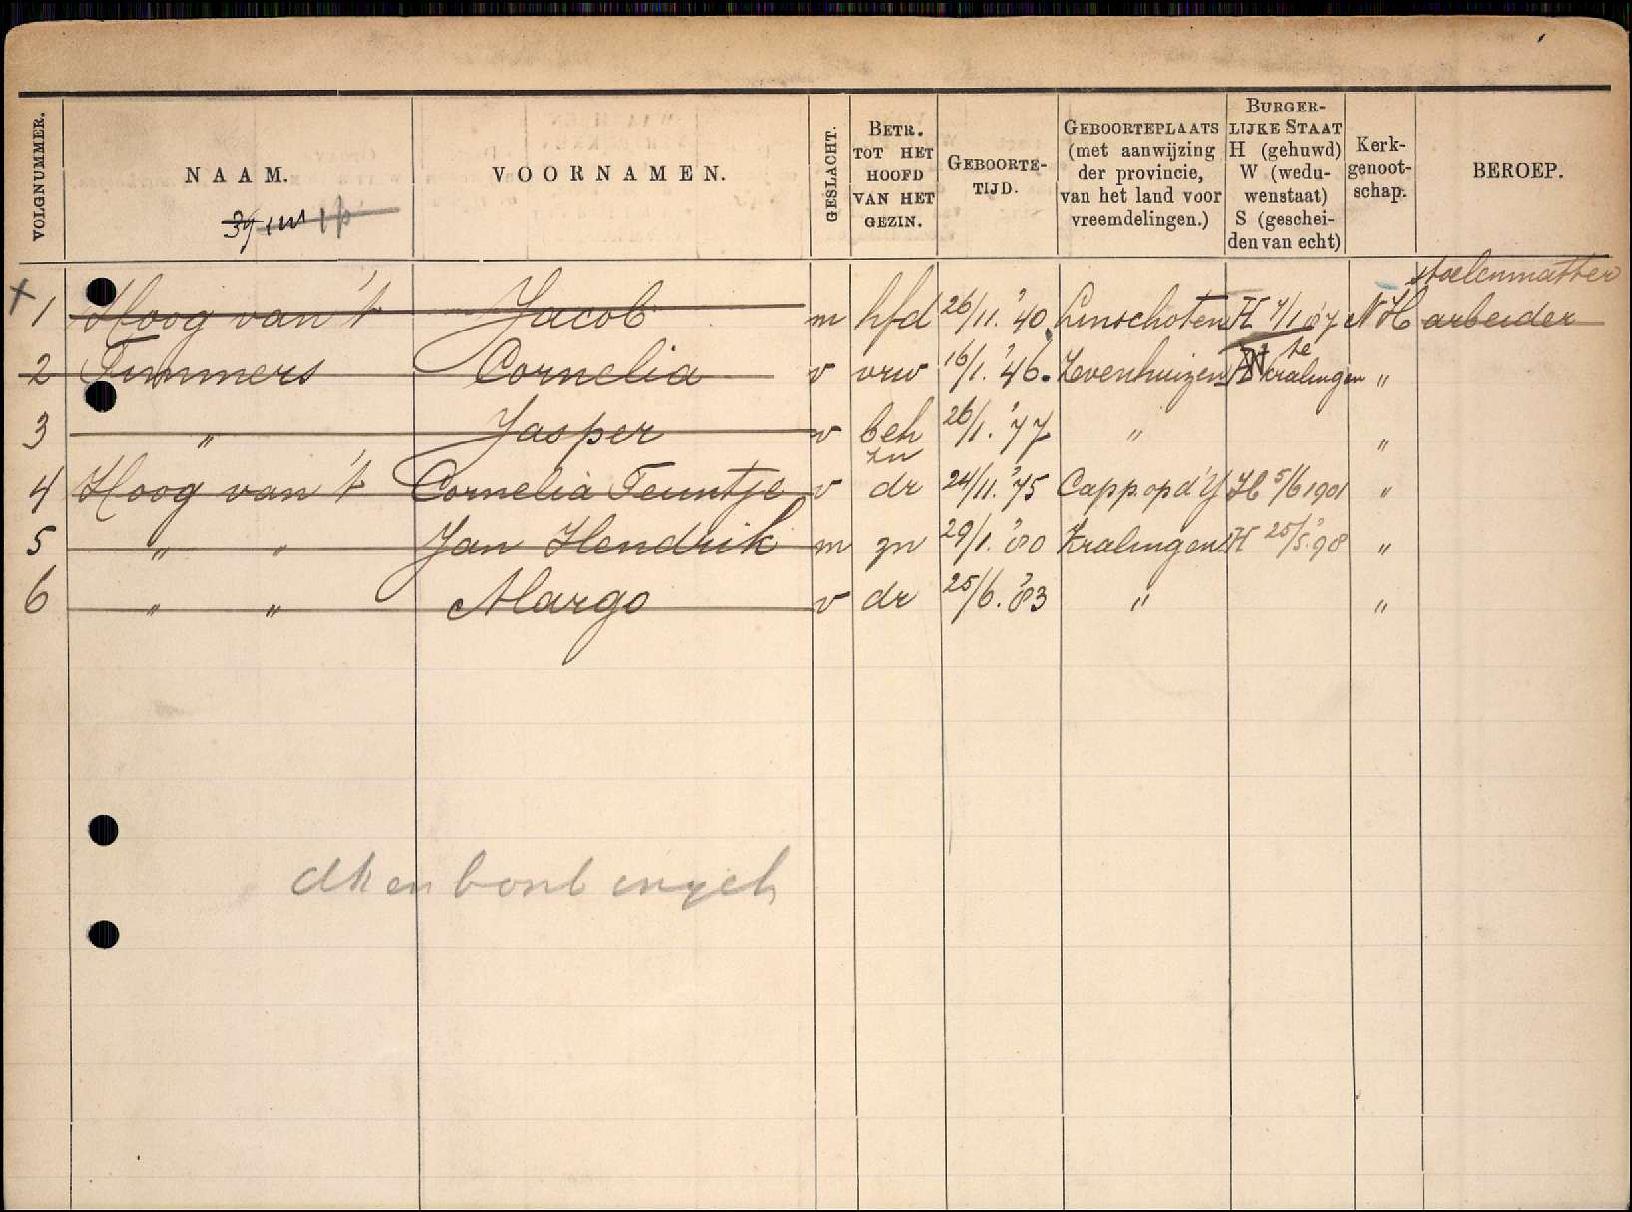 VOLGNUMMER.
NAAM.
VOORNAMEN.
GESLACHT.
BETR. TOT HET HOOFD VAN HET GEZIN.
GEBOORTE-TIJD.
GEBOORTEPLAATS (met aanwijzing der provincie, van het land voor vreemdelingen.)
BURGER-LIJKE STAAT H (gehuwd) W (wedu-wenstaat) S (geschei-den van echt)
Kerk-genoot-schap.
BEROEP.
stoelenmatter
1 Hoog van 't Jacob m hfd 26/11. '40 Linschoten H 7/1 '87 NH arbeider
2 Timmers Cornelia v vrw 16/1. '46. Zevenhuizen te Kralingen "
3 " Jasper v beh zn 26/1. '77 " "
4 Hoog van 't Cornelia Teuntje v dr 24/11. '75 Capp. op d' Y H 5/6 1901 "
5 " " Jan Hendrik m zn 29/1. '80 Kralingen H 25/5. '98 "
6 " " Margo v dr 25/6. '83 " "